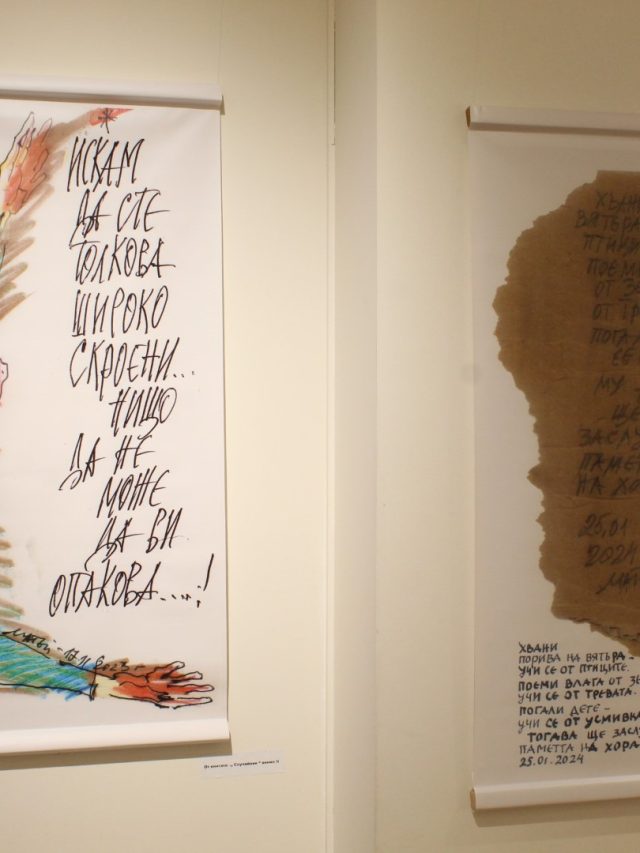 *
ИСКАМ
ДА СТЕ
ТОЛКОВА
ШИРОКО
СКРОЕНИ...
НИЩО
ДА НЕ
МОЖЕ
ДА ВИ
ОПАКОВА....!
ВЯТЪРА
ПОЕМИ
ОТ
ОТ
ПАМЕТ
НА ХО
25.01
2024
ХВАНИ
ПОРИВА НА ВЯТЪРА –
УЧИ СЕ ОТ ПТИЦИТЕ.
ПОЕМИ ВЛАГА ОТ ЗЕ
УЧИ СЕ ОТ ТРЕВАТА.
ПОГАЛИ ДЕТЕ –
УЧИ СЕ ОТ УСМИВКА
ТОГАВА ЩЕ ЗАСЛУ
ПАМЕТТА НА ХОРА
25.01.2024